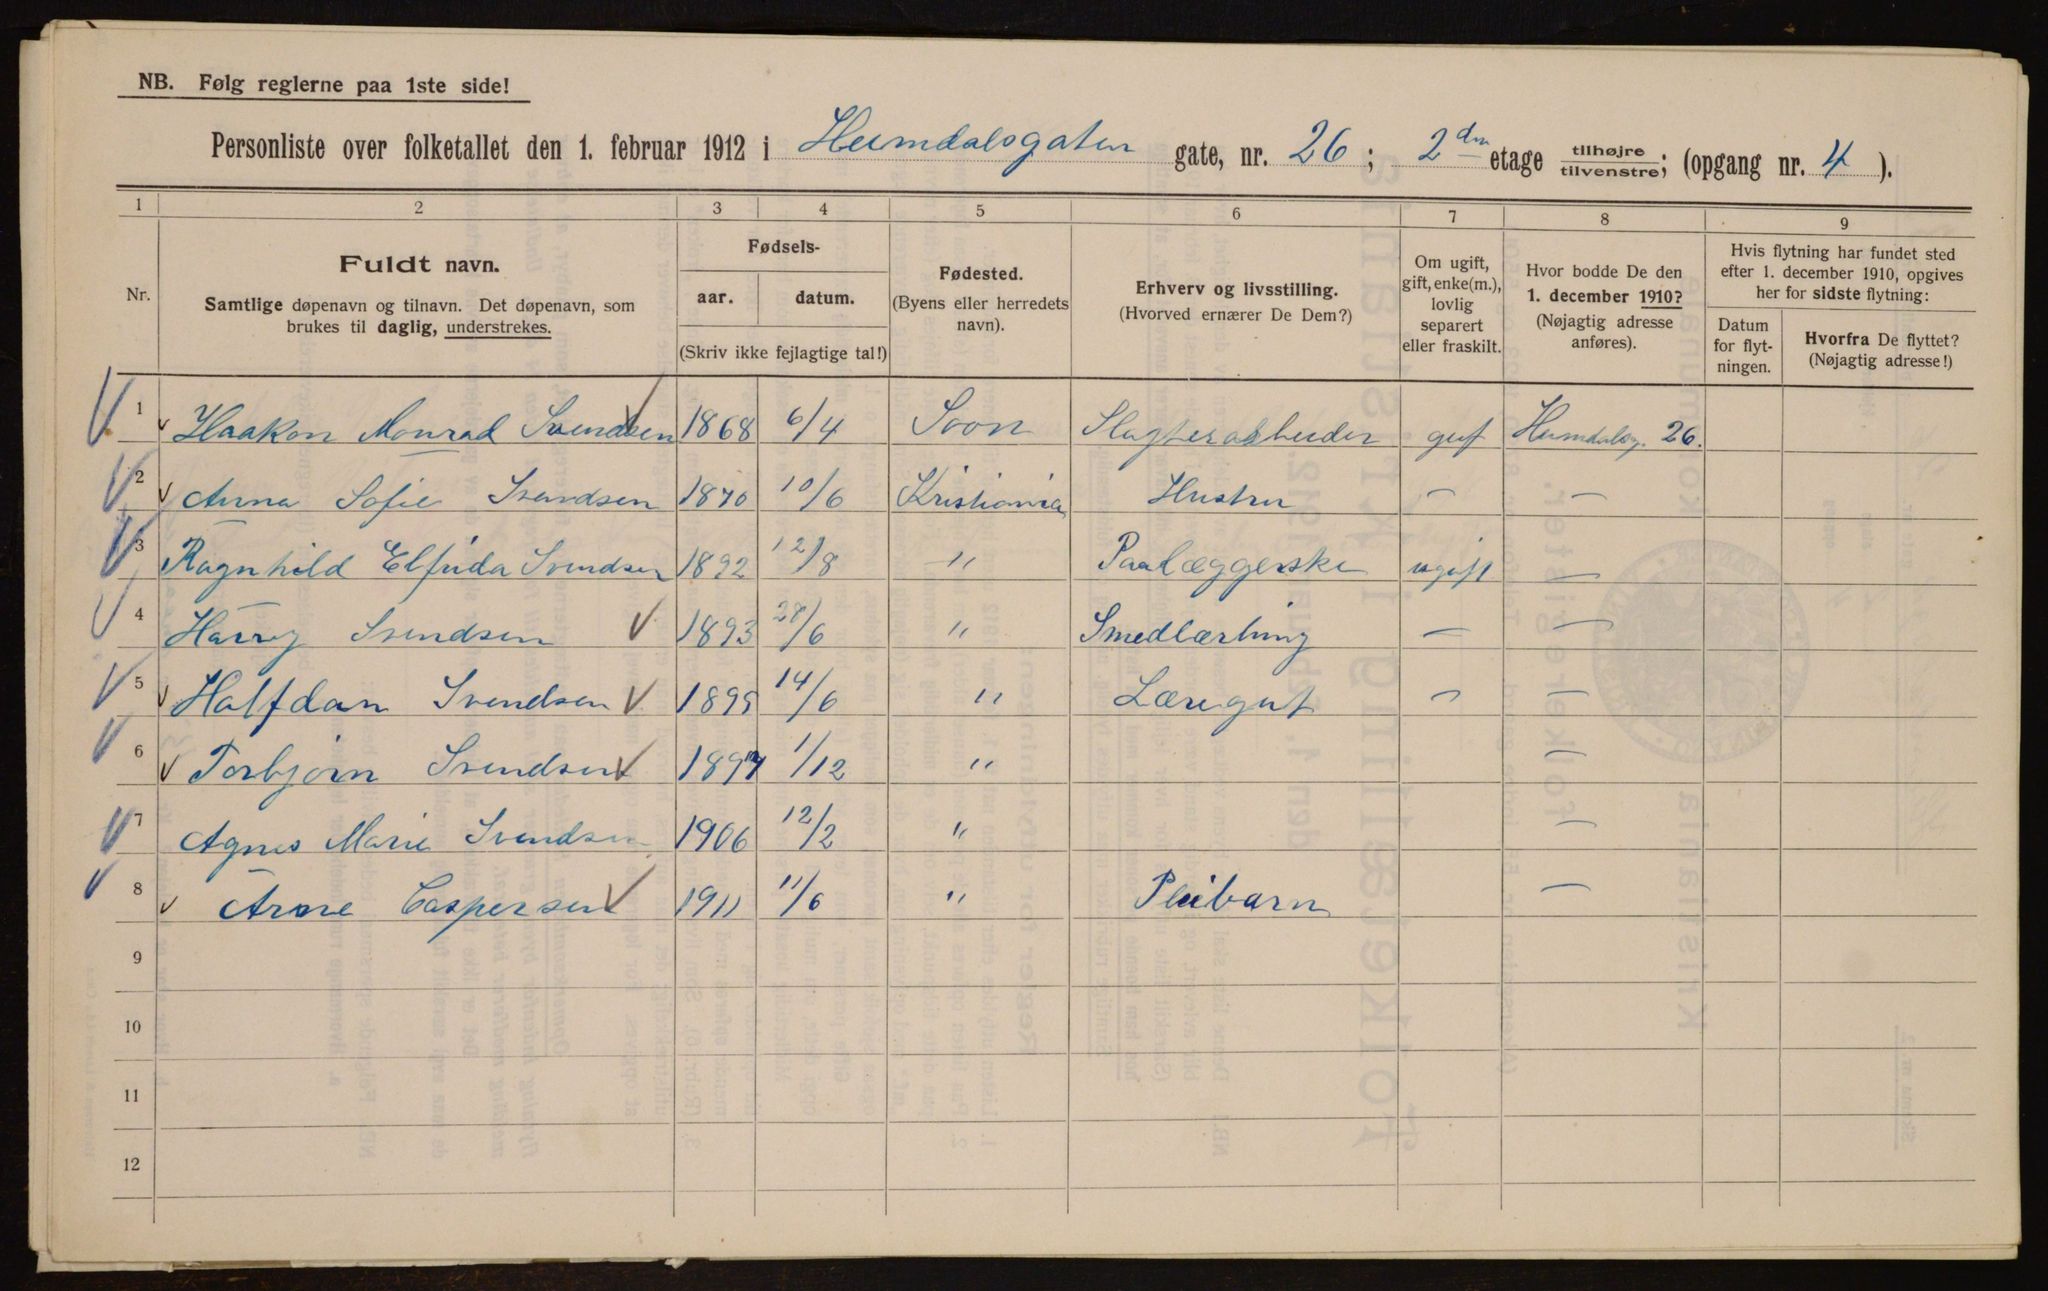 NB. Følg reglerne paa 1ste side!
Personliste over folketallet den 1. februar 1912 i Heimdalsgaten gate, nr. 26; 2den etage tilhøjre / tilvenstre; (opgang nr. 4).
1 2 3 4 5 6 7 8 9
Nr. Fuldt navn. Samtlige døpenavn og tilnavn. Det døpenavn, som brukes til daglig, understrekes.
Fødsels- aar. datum. (Skriv ikke fejlagtige tal!)
Fødested. (Byens eller herredets navn).
Erhverv og livsstilling. (Hvorved ernærer De Dem?)
Om ugift, gift, enke(m.), lovlig separert eller fraskilt.
Hvor bodde De den 1. december 1910? (Nøjagtig adresse anføres).
Hvis flytning har fundet sted efter 1. december 1910, opgives her for sidste flytning:
Datum for flyt- ningen. Hvorfra De flyttet? (Nøjagtig adresse!)
1 Haakon Monrad Svendsen 1868 6/4 Soon Slagterarbeider gift Heimdalsg. 26.
2 Anna Sofie Svendsen 1870 10/6 Kristiania Hustru — —
3 Ragnhild Elfrida Svendsen 1892 12/8 " Paalæggerske ugift —
4 Harry Svendsen 1893 28/6 " Smedlærling — —
5 Halfdan Svendsen 1895 14/6 " Læregut " —
6 Torbjørn Svendsen 1897 1/12 " —
7 Agnes Marie Svendsen 1906 12/2 " —
8 Arne Caspersen 1911 11/6 " Pleibarn —
9
10
11
12